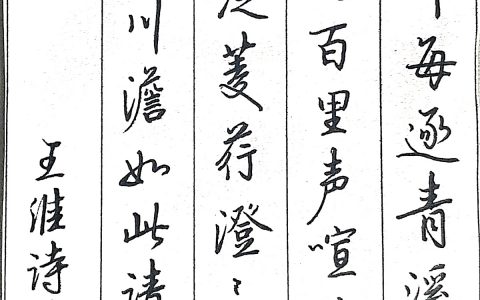 每逐青溪
百里声喧
菱荇澄〻
川澹如此请
王维诗